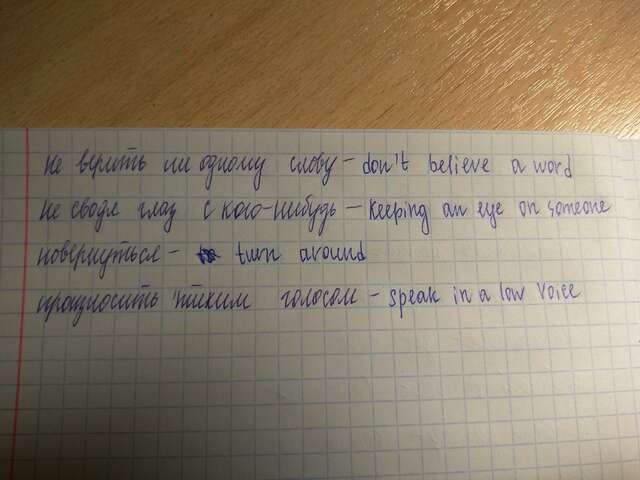 не верить ни одному слову – don't believe a word
не сводя глаз с кого-нибудь – keeping an eye on someone
повернуться – turn around
произносить тихим голосом – speak in a low voice